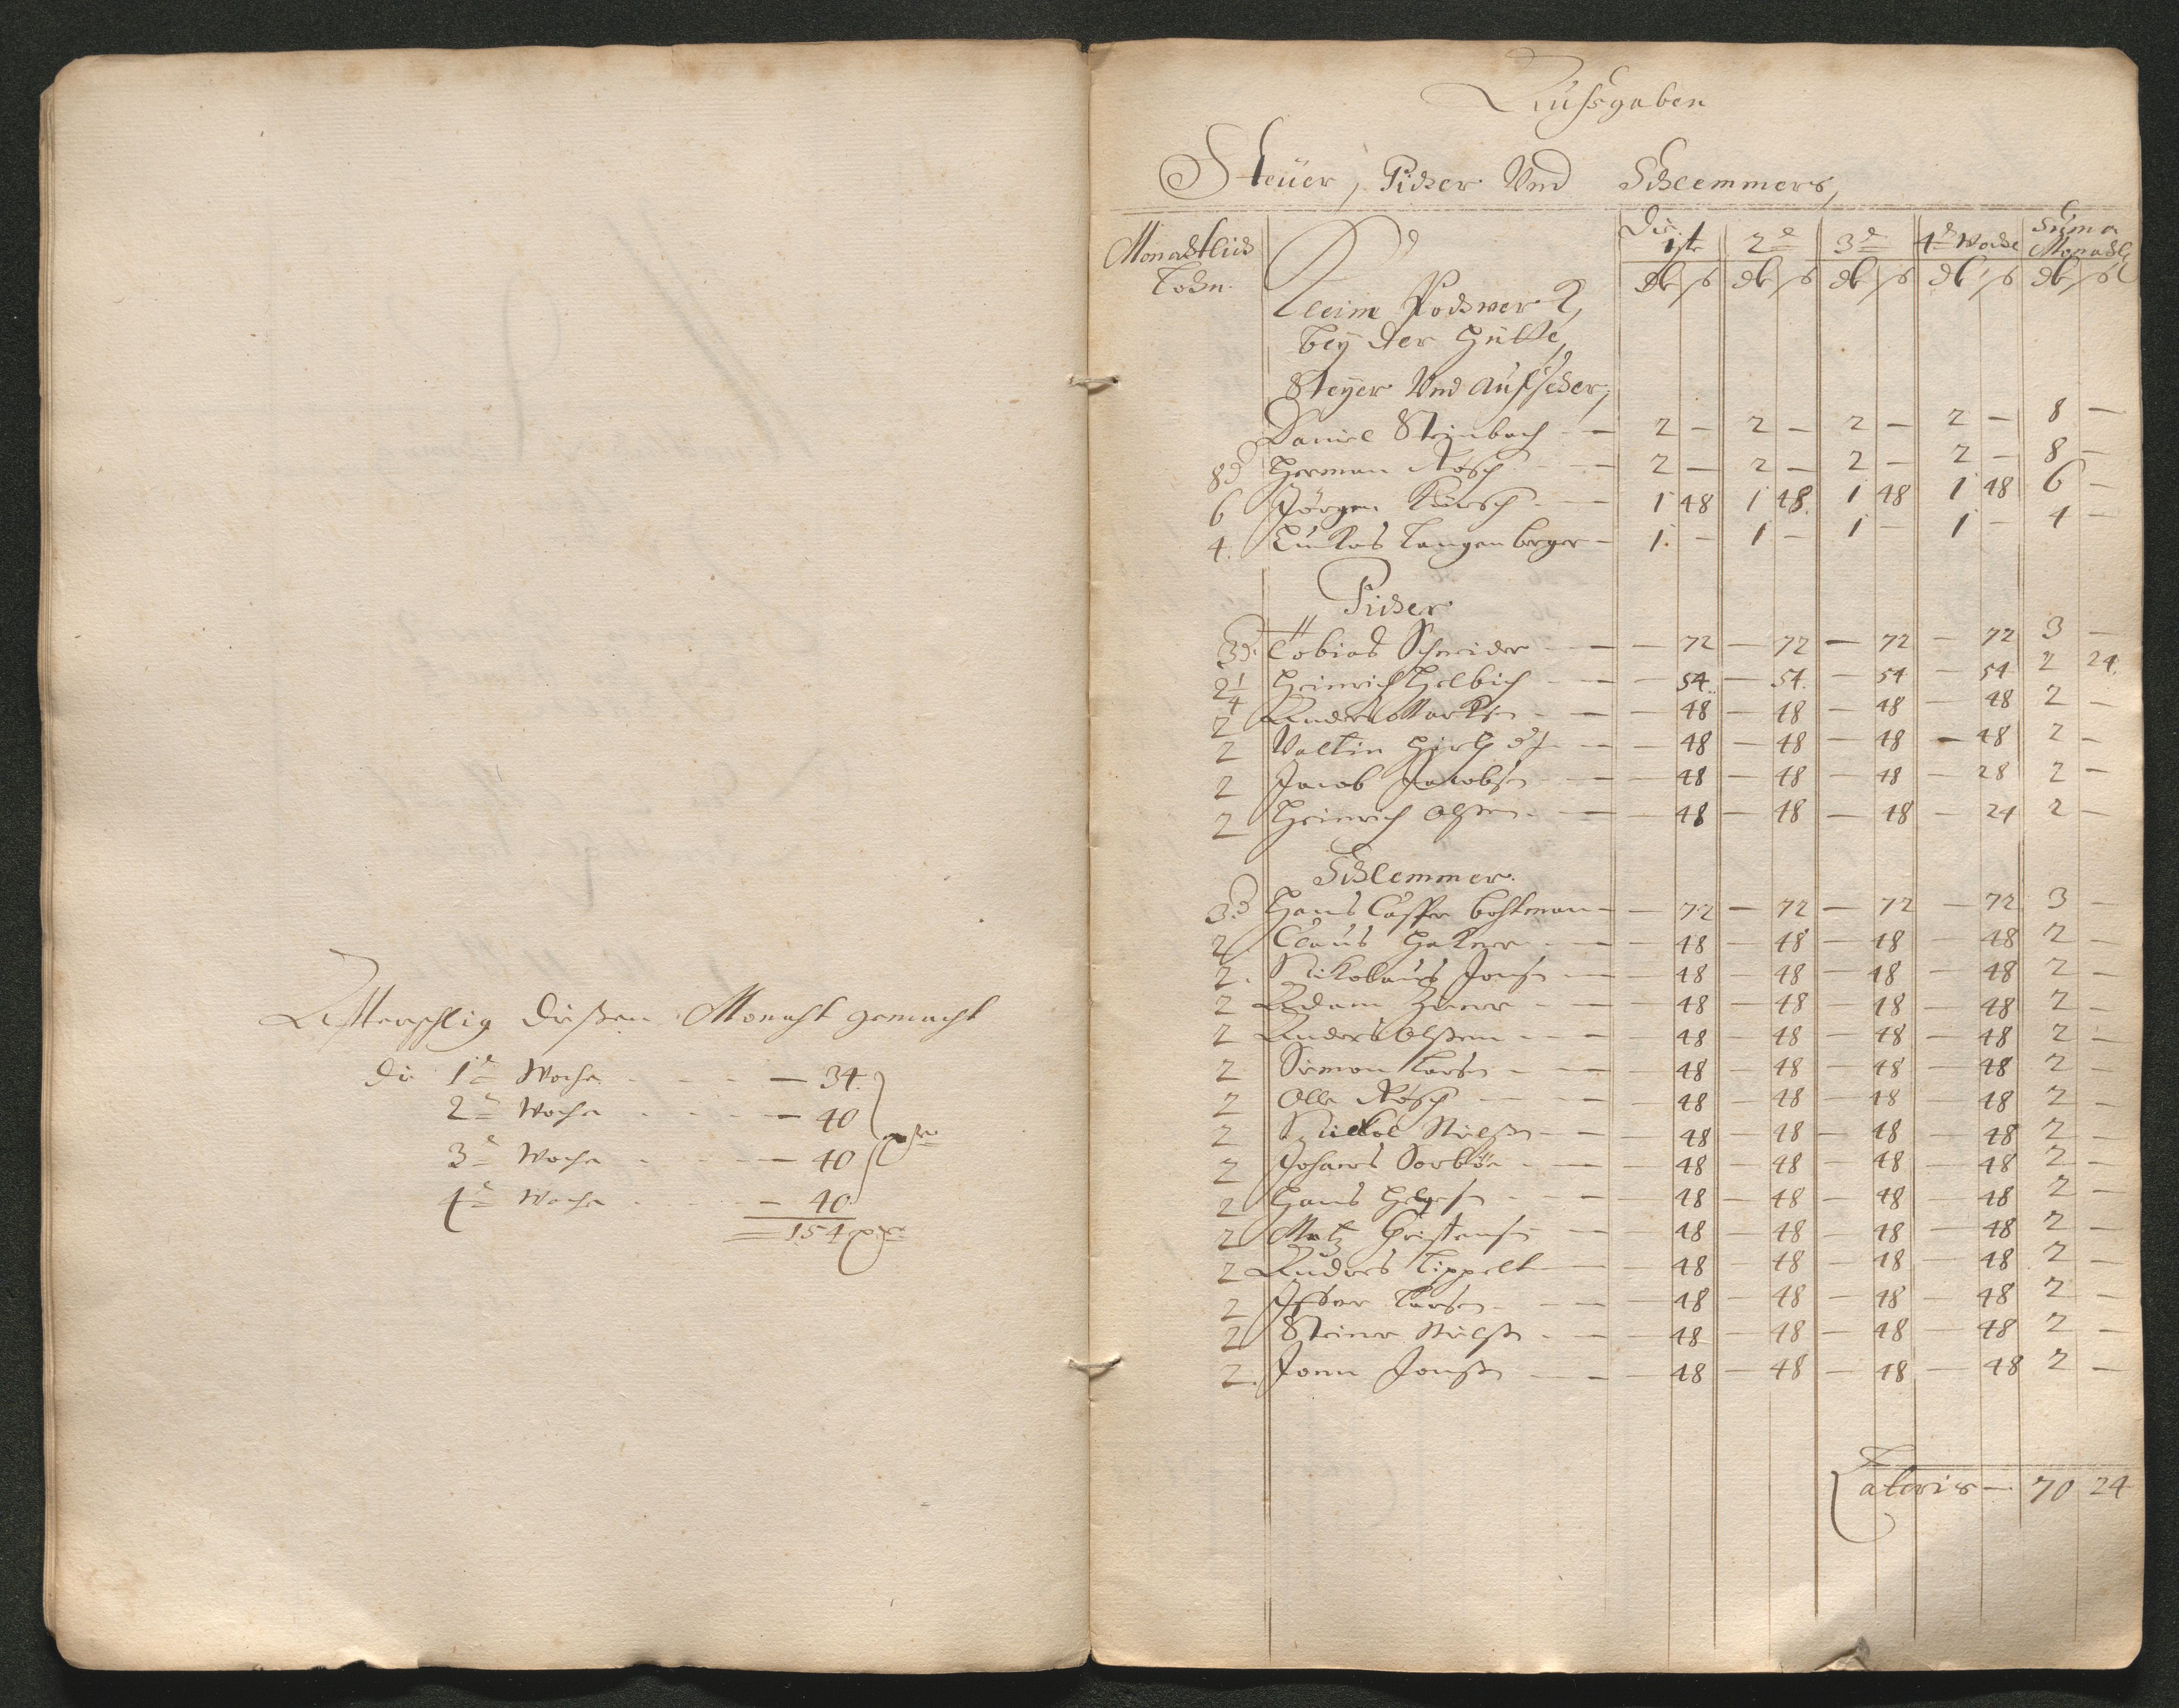 Afterschlig dießen Monaht gemacht
die 1te Woche - - - 34
2te Woche - - - 40
3te Woche - - - 40
4te Woche - - - 40
154
Außgaben
Steüer, Picher Und Schlemmers,
Monachtlich Lohn
Die 1ste 2te 3te 4te Woche Suma Monachl
Klein Pochwerk,
bey der Hütte,
Steyer Und aufseher,
Daniel Steinbach - 2 - 2 - 2 - 2 - 8 -
8 Herman Rösch - 2 - 2 - 2 - 2 - 8 -
6 Jörgen Kürsch - 1 48 1 48 1 48 1 48 6 -
4. Lukas Langenberger - 1 - 1 - 1 - 1 - 4 -
Picher
3 Tobias Schneider - - 72 - 72 - 72 - 72 3 -
2 1/4 Heinrich Helbich - - 54 - 54 - 54 - 54 2 24
2 Anders - - 48 - 48 - 48 - 48 2 -
2 Valtin - - 48 - 48 - 48 - 48 2 -
2 Jacob Jacobsen - - 48 - 48 - 48 - 28 2 -
2 Heinrich Olsen - - 48 - 48 - 48 - 24 2 -
Schlemmer
3 Hans Casper - - 72 - 72 - 72 - 72 3 -
2 Claus - - 48 - 48 - 48 - 48 2 -
2. Nikolaus Jonsen - - 48 - 48 - 48 - 48 2 -
2 Adam - - 48 - 48 - 48 - 48 2 -
2 Anders Olssen - - 48 - 48 - 48 - 48 2 -
2 Simon Larsen - - 48 - 48 - 48 - 48 2 -
2 Olle Rösch - - 48 - 48 - 48 - 48 2 -
2 Nikol - - 48 - 48 - 48 - 48 2 -
2 - - 48 - 48 - 48 - 48 2 -
2 Hans Helgesen - - 48 - 48 - 48 - 48 2 -
2 Matz Christensen - - 48 - 48 - 48 - 48 2 -
2 Andres Tippelt - - 48 - 48 - 48 - 48 2 -
2 Larsen - - 48 - 48 - 48 - 48 2 -
2 Steiner - - 48 - 48 - 48 - 48 2 -
2. Jonn Jonßen - - 48 - 48 - 48 - 48 2 -
Lateris - 70 24